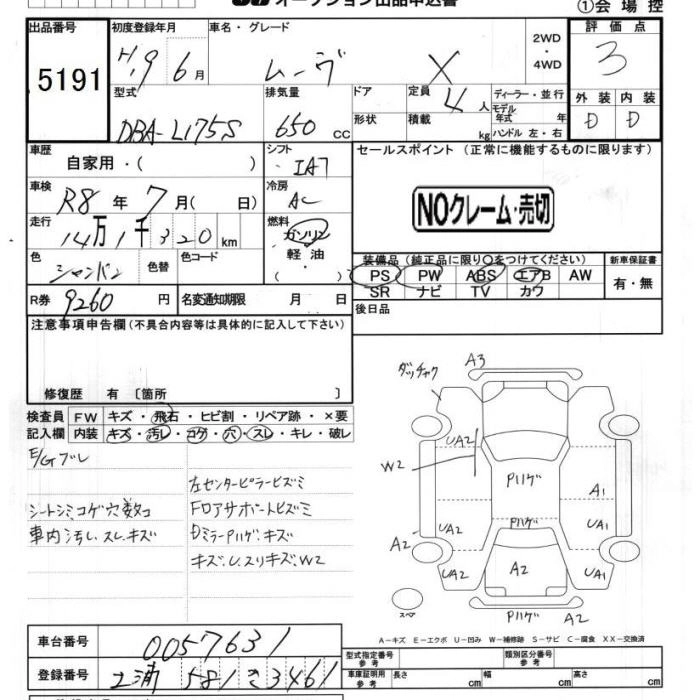 オークション出品申込書
①会場控
出品番号
5191
初度登録年月
H19 6月
車名・グレード
ムーヴ X
2WD
・
4WD
評価点
3
型式
DBA-L175S
排気量
650 cc
ドア
形状
定員 4人
積載 kg
ディーラー・並行
モデル年式 年
ハンドル 左・右
外装 D
内装 D
車歴
自家用・( )
シフト
IAT
セールスポイント (正常に機能するものに限ります)
車検
R8年 7月( 日)
冷房
AC
NOクレーム・売切
走行
14万1千320km
燃料
ガソリン
・
軽油
( )
色
シャンパン
色替
色コード
装備品 (純正品に限り○をつけてください)
新車保証書
PS PW ABS エアB AW
SR ナビ TV カワ
有・無
R券 9260円
名変通知期限 月 日
後日品
注意事項申告欄(不具合内容等は具体的に記入して下さい)
修復歴 有 〔箇所 〕
検査員記入欄
FW キズ・飛石・ヒビ割・リペア跡・×要
内装 キズ・汚レ・コゲ・穴・スレ・キレ・破レ
E/Gブレ
シートシミコゲ穴数コ
車内汚レ、スレ、キズ
左センターピラーヒズミ
Fロアサポートヒズミ
DミラーPハゲ、キズ
キズ、U、スリキズ、W2
ダッチャク
A3
UA2
W2
Pハゲ
A1
UA2
Pハゲ
UA1
A2
UA2
A2
UA1
スペア
Pハゲ
A2
A-キズ E-エクボ U-凹み W-補修跡 S-サビ C-腐食 XX-交換済
車台番号
0057631
型式指定番号
参考
類別区分番号
参考
登録番号
土浦 581 き 3461
車庫証明用
参考
長さ cm
幅 cm
高さ cm